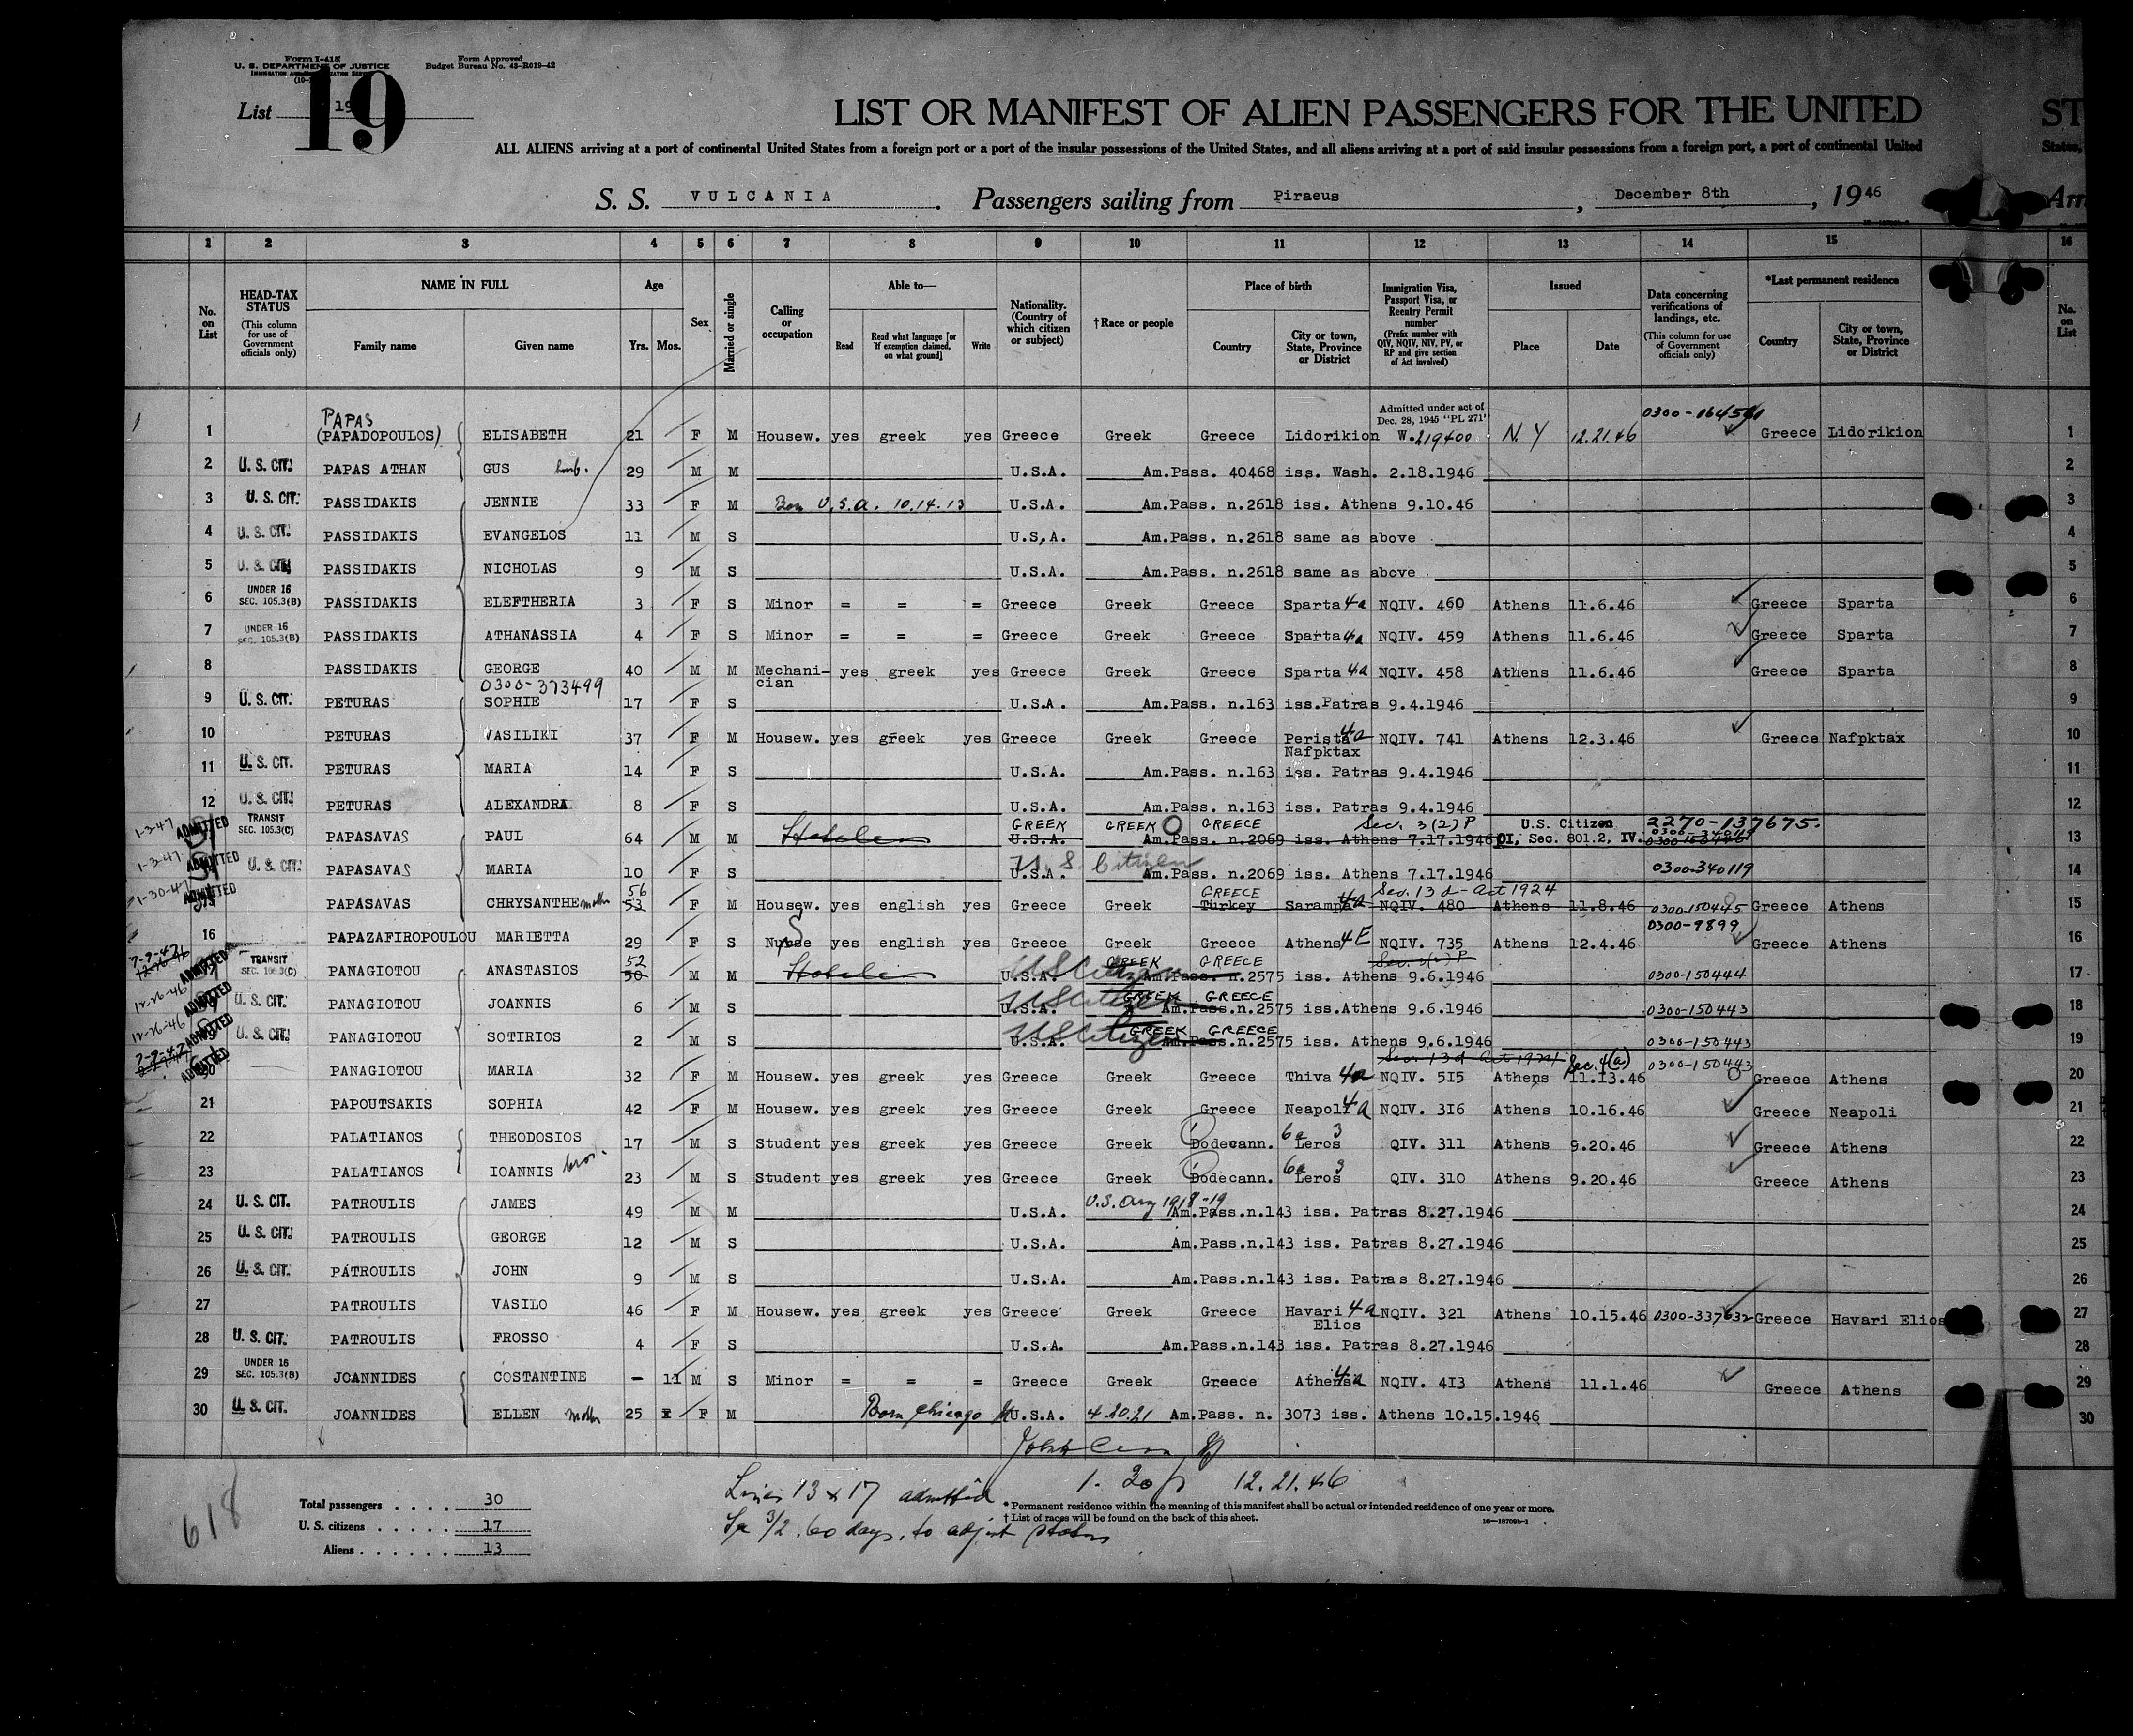 Form I-415
U. S. DEPARTMENT OF JUSTICE
Form Approved
Budget Bureau No. 43-R019-42
List 19
19
LIST OR MANIFEST OF ALIEN PASSENGERS FOR THE UNITED ST
ALL ALIENS arriving at a port of continental United States from a foreign port or a port of the insular possessions of the United States, and all aliens arriving at a port of said insular possessions from a foreign port, a port of continental United States,
S. S. VULCANIA. Passengers sailing from Piraeus, December 8th, 1946
1 2 3 4 5 6 7 8 9 10 11 12 13 14 15 16
No. on List
HEAD-TAX STATUS
(This column for use of Government officials only)
NAME IN FULL
Family name Given name
Age
Yrs. Mos.
Sex
Married or single
Calling or occupation
Able to—
Read Read what language [or if exemption claimed, on what ground] Write
Nationality. (Country of which citizen or subject)
†Race or people
Place of birth
Country City or town, State, Province or District
Immigration Visa, Passport Visa, or Reentry Permit number
(Prefix number with QIV, NQIV, NIV, PV, or RP and give section of Act involved)
Issued
Place Date
Data concerning verifications of landings, etc.
(This column for use of Government officials only)
*Last permanent residence
Country City or town, State, Province or District
No. on List
PAPAS Admitted under act of Dec. 28, 1945 "PL 271"
1 (PAPADOPOULOS) ELISABETH 21 F M Housew. yes greek yes Greece Greek Greece Lidorikion W-219400 N.Y 12.21.46 Greece Lidorikion 1
2 U. S. CIT. PAPAS ATHAN GUS husb. 29 M M U.S.A. Am.Pass. 40468 iss. Wash. 2.18.1946 2
3 U. S. CIT. PASSIDAKIS JENNIE 33 F M Born U.S.A. 10.14.13 U.S.A. Am.Pass. n.2618 iss. Athens 9.10.46 3
4 U. S. CIT. PASSIDAKIS EVANGELOS 11 M S U.S.A. Am.Pass. n.2618 same as above 4
5 U. S. CIT. PASSIDAKIS NICHOLAS 9 M S U.S.A. Am.Pass. n.2618 same as above 5
6 UNDER 16 SEC. 105.3(B) PASSIDAKIS ELEFTHERIA 3 F S Minor = = = Greece Greek Greece Sparta 4a NQIV. 460 Athens 11.6.46 Greece Sparta 6
7 UNDER 16 SEC. 105.3(B) PASSIDAKIS ATHANASSIA 4 F S Minor = = = Greece Greek Greece Sparta 4a NQIV. 459 Athens 11.6.46 Greece Sparta 7
8 PASSIDAKIS GEORGE 40 M M Mechani- yes greek yes Greece Greek Greece Sparta 4a NQIV. 458 Athens 11.6.46 Greece Sparta 8
0300-373499 cian
9 U. S. CIT. PETURAS SOPHIE 17 F S U.S.A. Am.Pass. n.163 iss.Patras 9.4.1946 9
10 PETURAS VASILIKI 37 F M Housew. yes greek yes Greece Greek Greece Perista 4a NQIV. 741 Athens 12.3.46 Greece Nafpktax 10
Nafpktax
11 U. S. CIT. PETURAS MARIA 14 F S U.S.A. Am.Pass. n.163 iss. Patras 9.4.1946 11
12 U. S. CIT. PETURAS ALEXANDRA 8 F S U.S.A. Am.Pass. n.163 iss. Patras 9.4.1946 12
1-3-47 ADMITTED TRANSIT SEC. 105.3(C) GREEK GREEK GREECE Sec. 3(2) P U.S. Citizen 2270-137675.
PAPASAVAS PAUL 64 M M U.S.A. Am.Pass. n.2069 iss. Athens 7.17.1946 OI, Sec. 801.2, IV. 13
1-3-47 ADMITTED U. S. CIT. PAPASAVAS MARIA 10 F S U.S.A. U.S. Citizen Am.Pass. n.2069 iss. Athens 7.17.1946 0300-340119 14
1-30-47 ADMITTED 56 GREECE Sec. 13 d - Act 1924
PAPASAVAS CHRYSANTHE mother 53 F M Housew. yes english yes Greece Greek Turkey Sarampa 4a NQIV. 480 Athens 11.8.46 0300-150445 Greece Athens 15
0300-9899
16 PAPAZAFIROPOULOU MARIETTA 29 F S Nurse yes english yes Greece Greek Greece Athens 4E NQIV. 735 Athens 12.4.46 Greece Athens 16
ADMITTED TRANSIT SEC. 105.3(C) 52 GREEK GREECE Sec. 3(2) P
PANAGIOTOU ANASTASIOS 50 M M U.S.A. US Citizen Am.Pass. n.2575 iss. Athens 9.6.1946 0300-150444 17
12-26-46 ADMITTED U. S. CIT. PANAGIOTOU JOANNIS 6 M S U.S.A. US Citizen GREEK GREECE Am.Pass. n.2575 iss.Athens 9.6.1946 0300-150443 18
12-26-46 ADMITTED U. S. CIT. PANAGIOTOU SOTIRIOS 2 M S U.S.A. US Citizen GREEK GREECE Am.Pass.n.2575 iss. Athens 9.6.1946 0300-150443 19
ADMITTED Sec. 13d Act 1924 Sec. 4(a) 0300-150443
PANAGIOTOU MARIA 32 F M Housew. yes greek yes Greece Greek Greece Thiva 4a NQIV. 5I5 Athens 11.13.46 Greece Athens 20
21 PAPOUTSAKIS SOPHIA 42 F M Housew. yes greek yes Greece Greek Greece Neapoli 4a NQIV. 3I6 Athens 10.16.46 Greece Neapoli 21
22 PALATIANOS THEODOSIOS 17 M S Student yes greek yes Greece Greek Dodecann. 6a 3 Leros QIV. 311 Athens 9.20.46 Greece Athens 22
23 PALATIANOS IOANNIS bros. 23 M S Student yes greek yes Greece Greek Dodecann. 6a 3 Leros QIV. 310 Athens 9.20.46 Greece Athens 23
24 U. S. CIT. PATROULIS JAMES 49 M M U.S.A. U.S. Army 1918-19 Am.Pass.n.143 iss. Patras 8.27.1946 24
25 U. S. CIT. PATROULIS GEORGE 12 M S U.S.A. Am.Pass.n.143 iss. Patras 8.27.1946 25
26 U. S. CIT. PATROULIS JOHN 9 M S U.S.A. Am.Pass.n.143 iss. Patras 8.27.1946 26
27 PATROULIS VASILO 46 F M Housew. yes greek yes Greece Greek Greece Havari 4a NQIV. 321 Athens 10.15.46 0300-337632 Greece Havari Elios 27
Elios
28 U. S. CIT. PATROULIS FROSSO 4 F S U.S.A. Am.Pass.n.143 iss. Patras 8.27.1946 28
29 UNDER 16 SEC. 105.3(B) JOANNIDES COSTANTINE - 11 M S Minor = = = Greece Greek Greece Athens 4a NQIV. 4I3 Athens 11.1.46 Greece Athens 29
30 U. S. CIT. JOANNIDES ELLEN mother 25 F M Born Chicago U.S.A. 4.20.21 Am.Pass. n. 3073 iss. Athens 10.15.1946 30
1-30 12.21.46
618
Total passengers . . . . 30
U. S. citizens . . . . . 17
Aliens . . . . . . 13
Lines 13 x 17 admitted
3/2. 60 days. to adjust status
*Permanent residence within the meaning of this manifest shall be actual or intended residence of one year or more.
†List of races will be found on the back of this sheet.